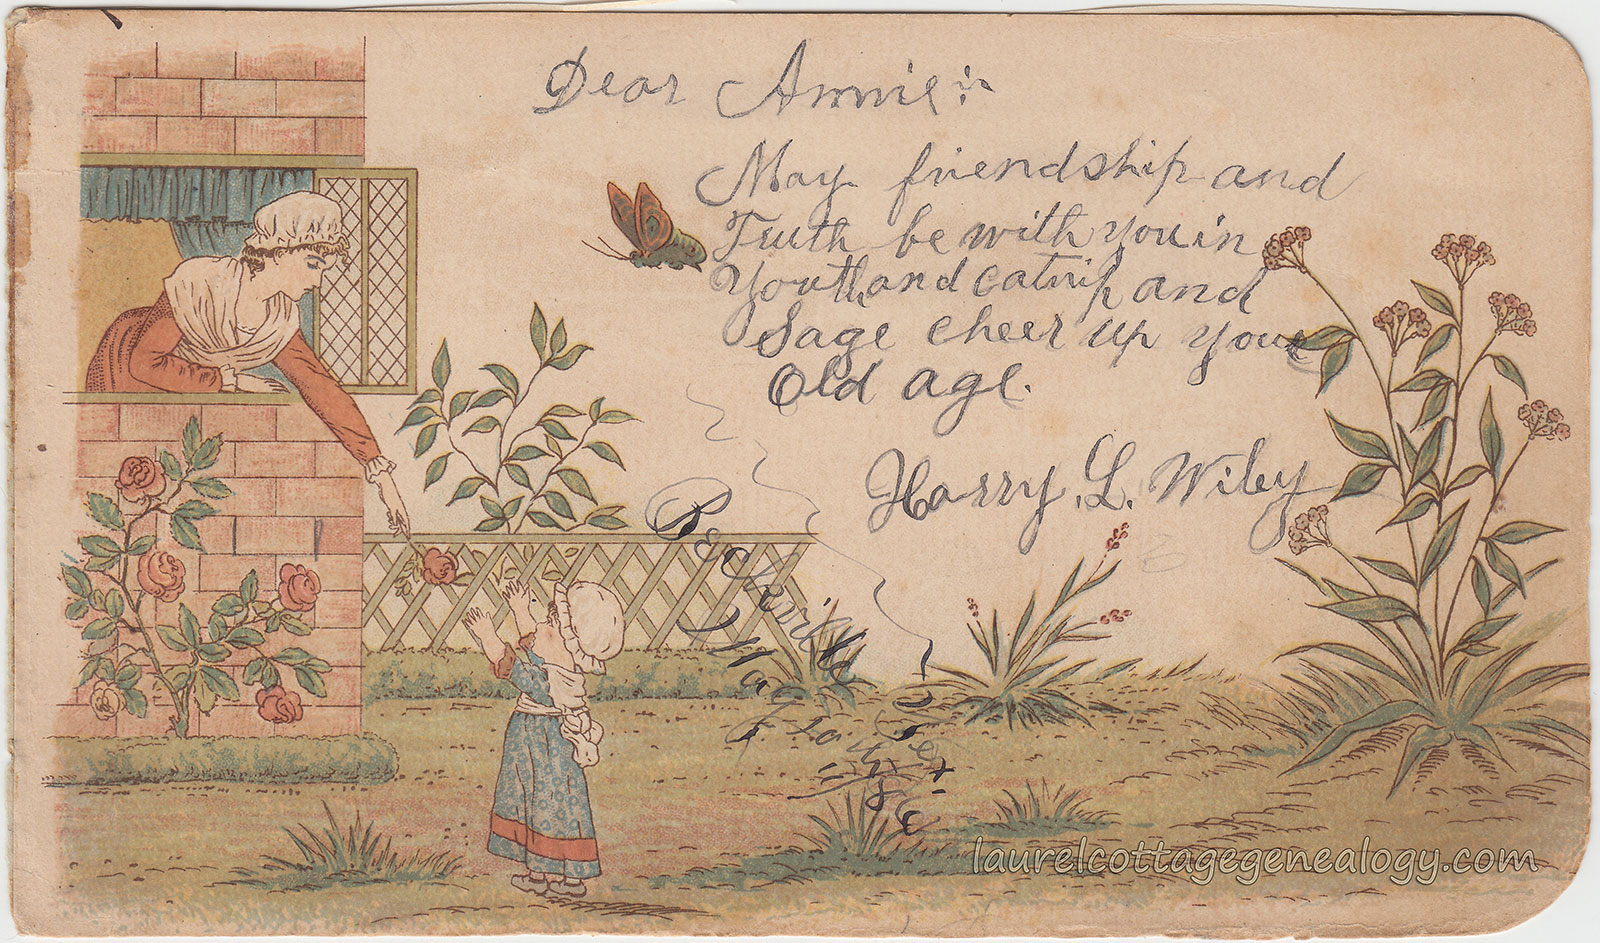 Dear Annie:-
May friendship and
Truth be with you in
Youth, and catnip and
Sage cheer up your
Old age.
Harry. L. Wiley
Beckville
May
laurelcottagegenealogy.com